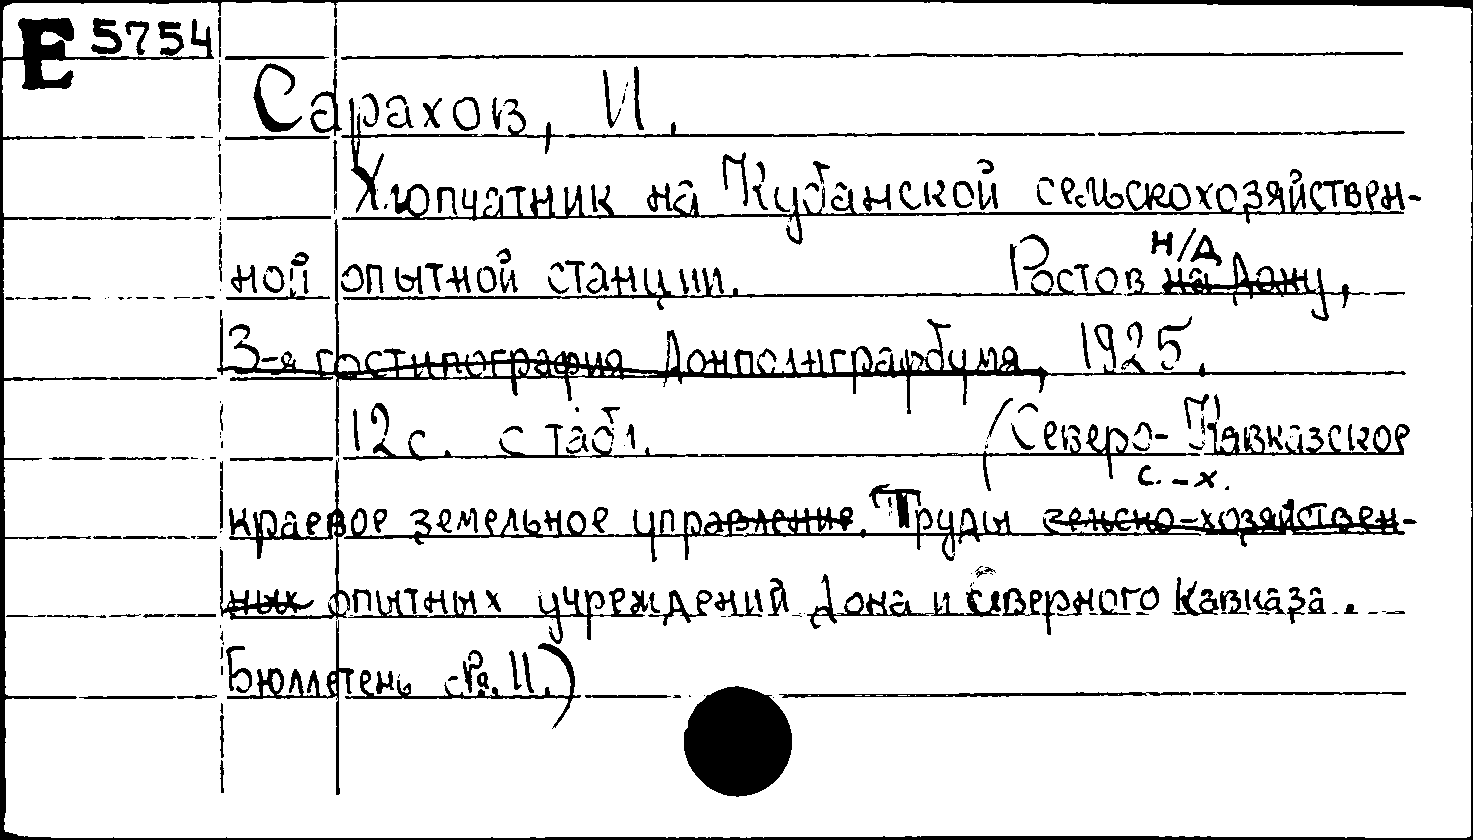 Е 5754
Сарахов, И.
Хлопчатник на Кубанской сельскохозяйствен-
ной опытной станции. Ростов на Дону, н/Д
3-я гостипография Донполиграфбума, 1925.
12 с. с табл. (Северо-Кавказское
краевое земельное управление. Труды сельско-хозяйствен- с.-х.
ных опытных учреждений Дона и Северного Кавказа.
Бюллетень №. 11.)